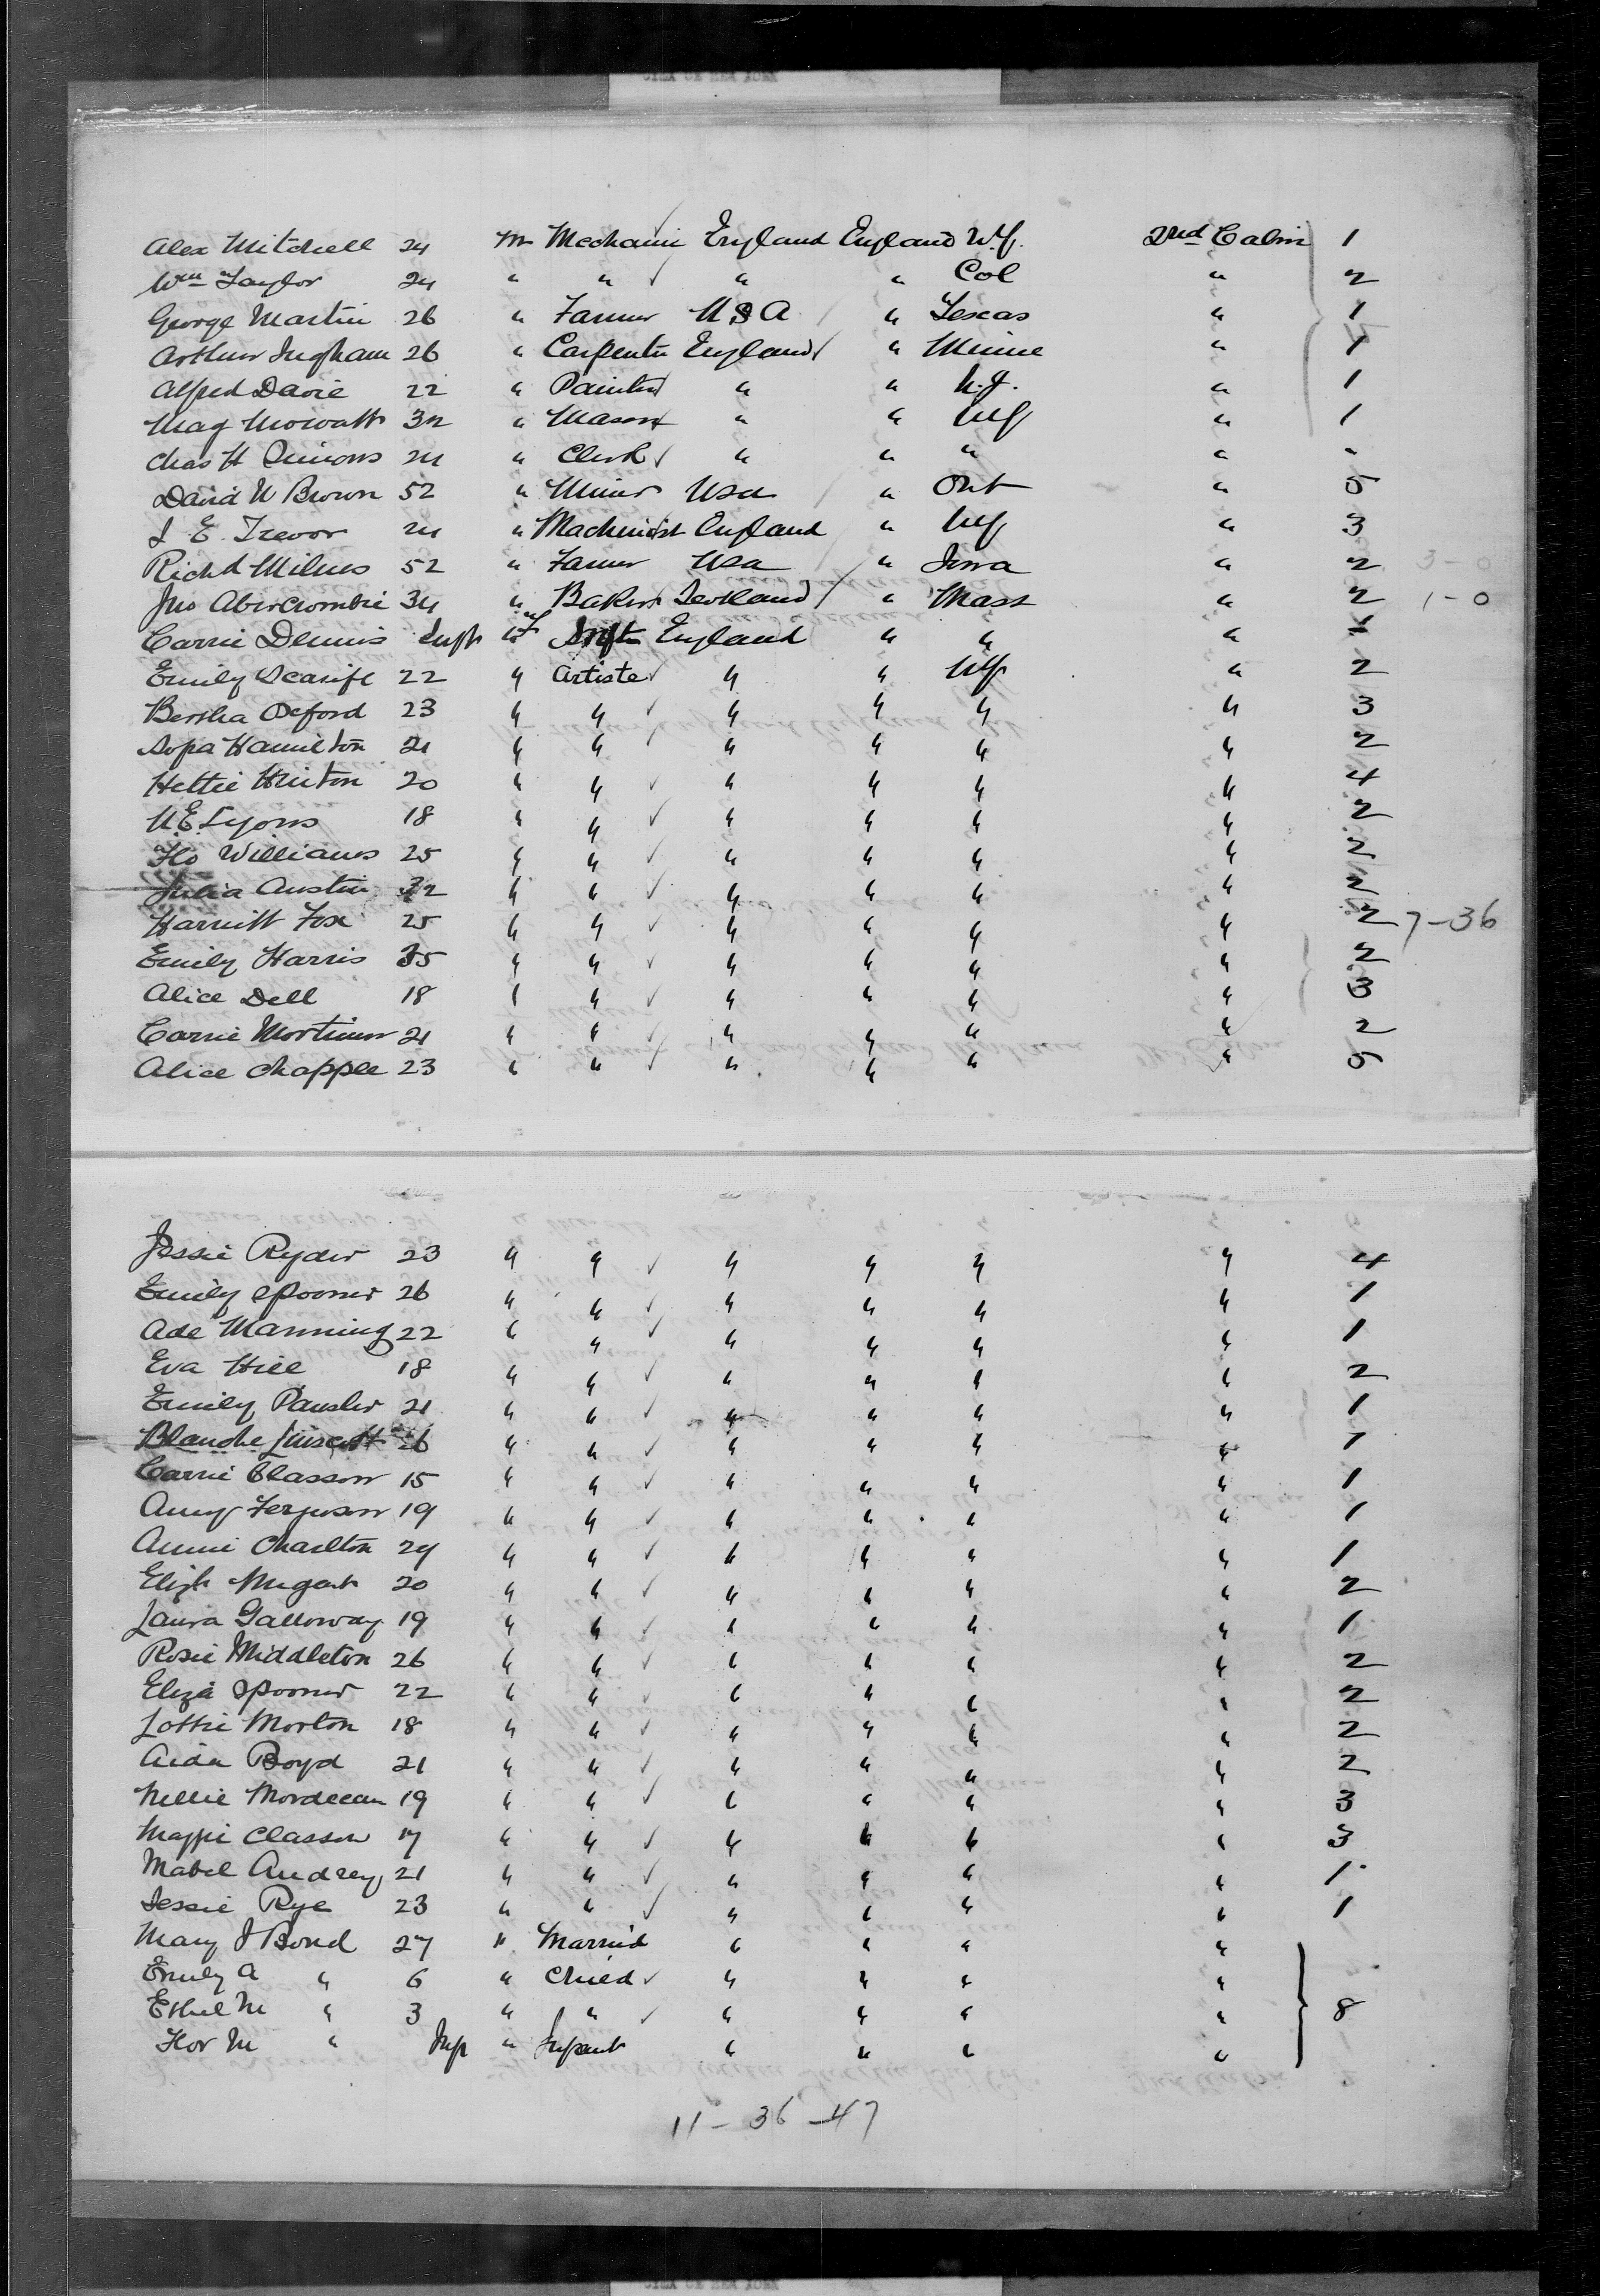 CITY OF NEW YORK
Alex Mitchell 24 M Mechanic England England N.Y. 2nd Cabin 1
Wm Taylor 24 " " " " Col " 2
George Martin 26 " Farmer U S A " Texas " 1
Arthur Ingham 26 " Carpenter England " Minne " 1
Alfred Davie 22 " Painter " " N.J. " 1
Mag Mowatt 32 " Mason " " NY " 1
Chas H Simons 24 " Clerk " " " " "
David W Brown 52 " Miner USA " Ont " 5
J E Trevor 24 " Machinist England " NY " 3
Richd Milnes 52 " Farmer USA " Iowa " 2 3-0
Jno Abercrombie 34 " Baker Scotland " Mass " 2 1-0
Carrie Dennis Inft F Inft England " " " 1
Emily Scarife 22 " Artiste " " NY " 2
Bertha Oxford 23 " " " " " " 3
Hamilton 21 " " " " " " 2
Hettie Hinton 20 " " " " " " 4
N.E. Lyons 18 " " " " " " 2
Flo Williams 25 " " " " " " 2
Julia Austin 32 " " " " " " 2
Harriett Fox 25 " " " " " " 2 7-36
Emily Harris 35 " " " " " " 2
Alice Dell 18 " " " " " " 3
Carrie Mortimer 21 " " " " " " 2
Alice Chapple 23 " " " " " " 5
Jessie Ryder 23 " " " " " " 4
Emily Spooner 26 " " " " " " 1
Ade Manning 22 " " " " " " 1
Eva Hill 18 " " " " " " 2
Emily 21 " " " " " " 1
Blanche Linscott 26 " " " " " " 1
Carrie Classon 15 " " " " " " 1
Amy Ferguson 19 " " " " " " 1
Annie Charlton 24 " " " " " " 1
Eliz Nugent 20 " " " " " " 2
Laura Galloway 19 " " " " " " 1
Rosie Middleton 26 " " " " " " 2
Eliza Spooner 22 " " " " " " 2
Lottie Morton 18 " " " " " " 2
Aida Boyd 21 " " " " " " 2
Nellie 19 " " " " " " 3
Maggie Classon 17 " " " " " " 3
Mabel Audrey 21 " " " " " " 1
Jessie Rye 23 " " " " " " 1
Mary J Bond 27 " Married " " " "
Emily A " 6 " Child " " " "
Ethel M " 3 " " " " " " 8
Flor M " Inft " Infant " " " "
11-36-47
CITY OF NEW YORK